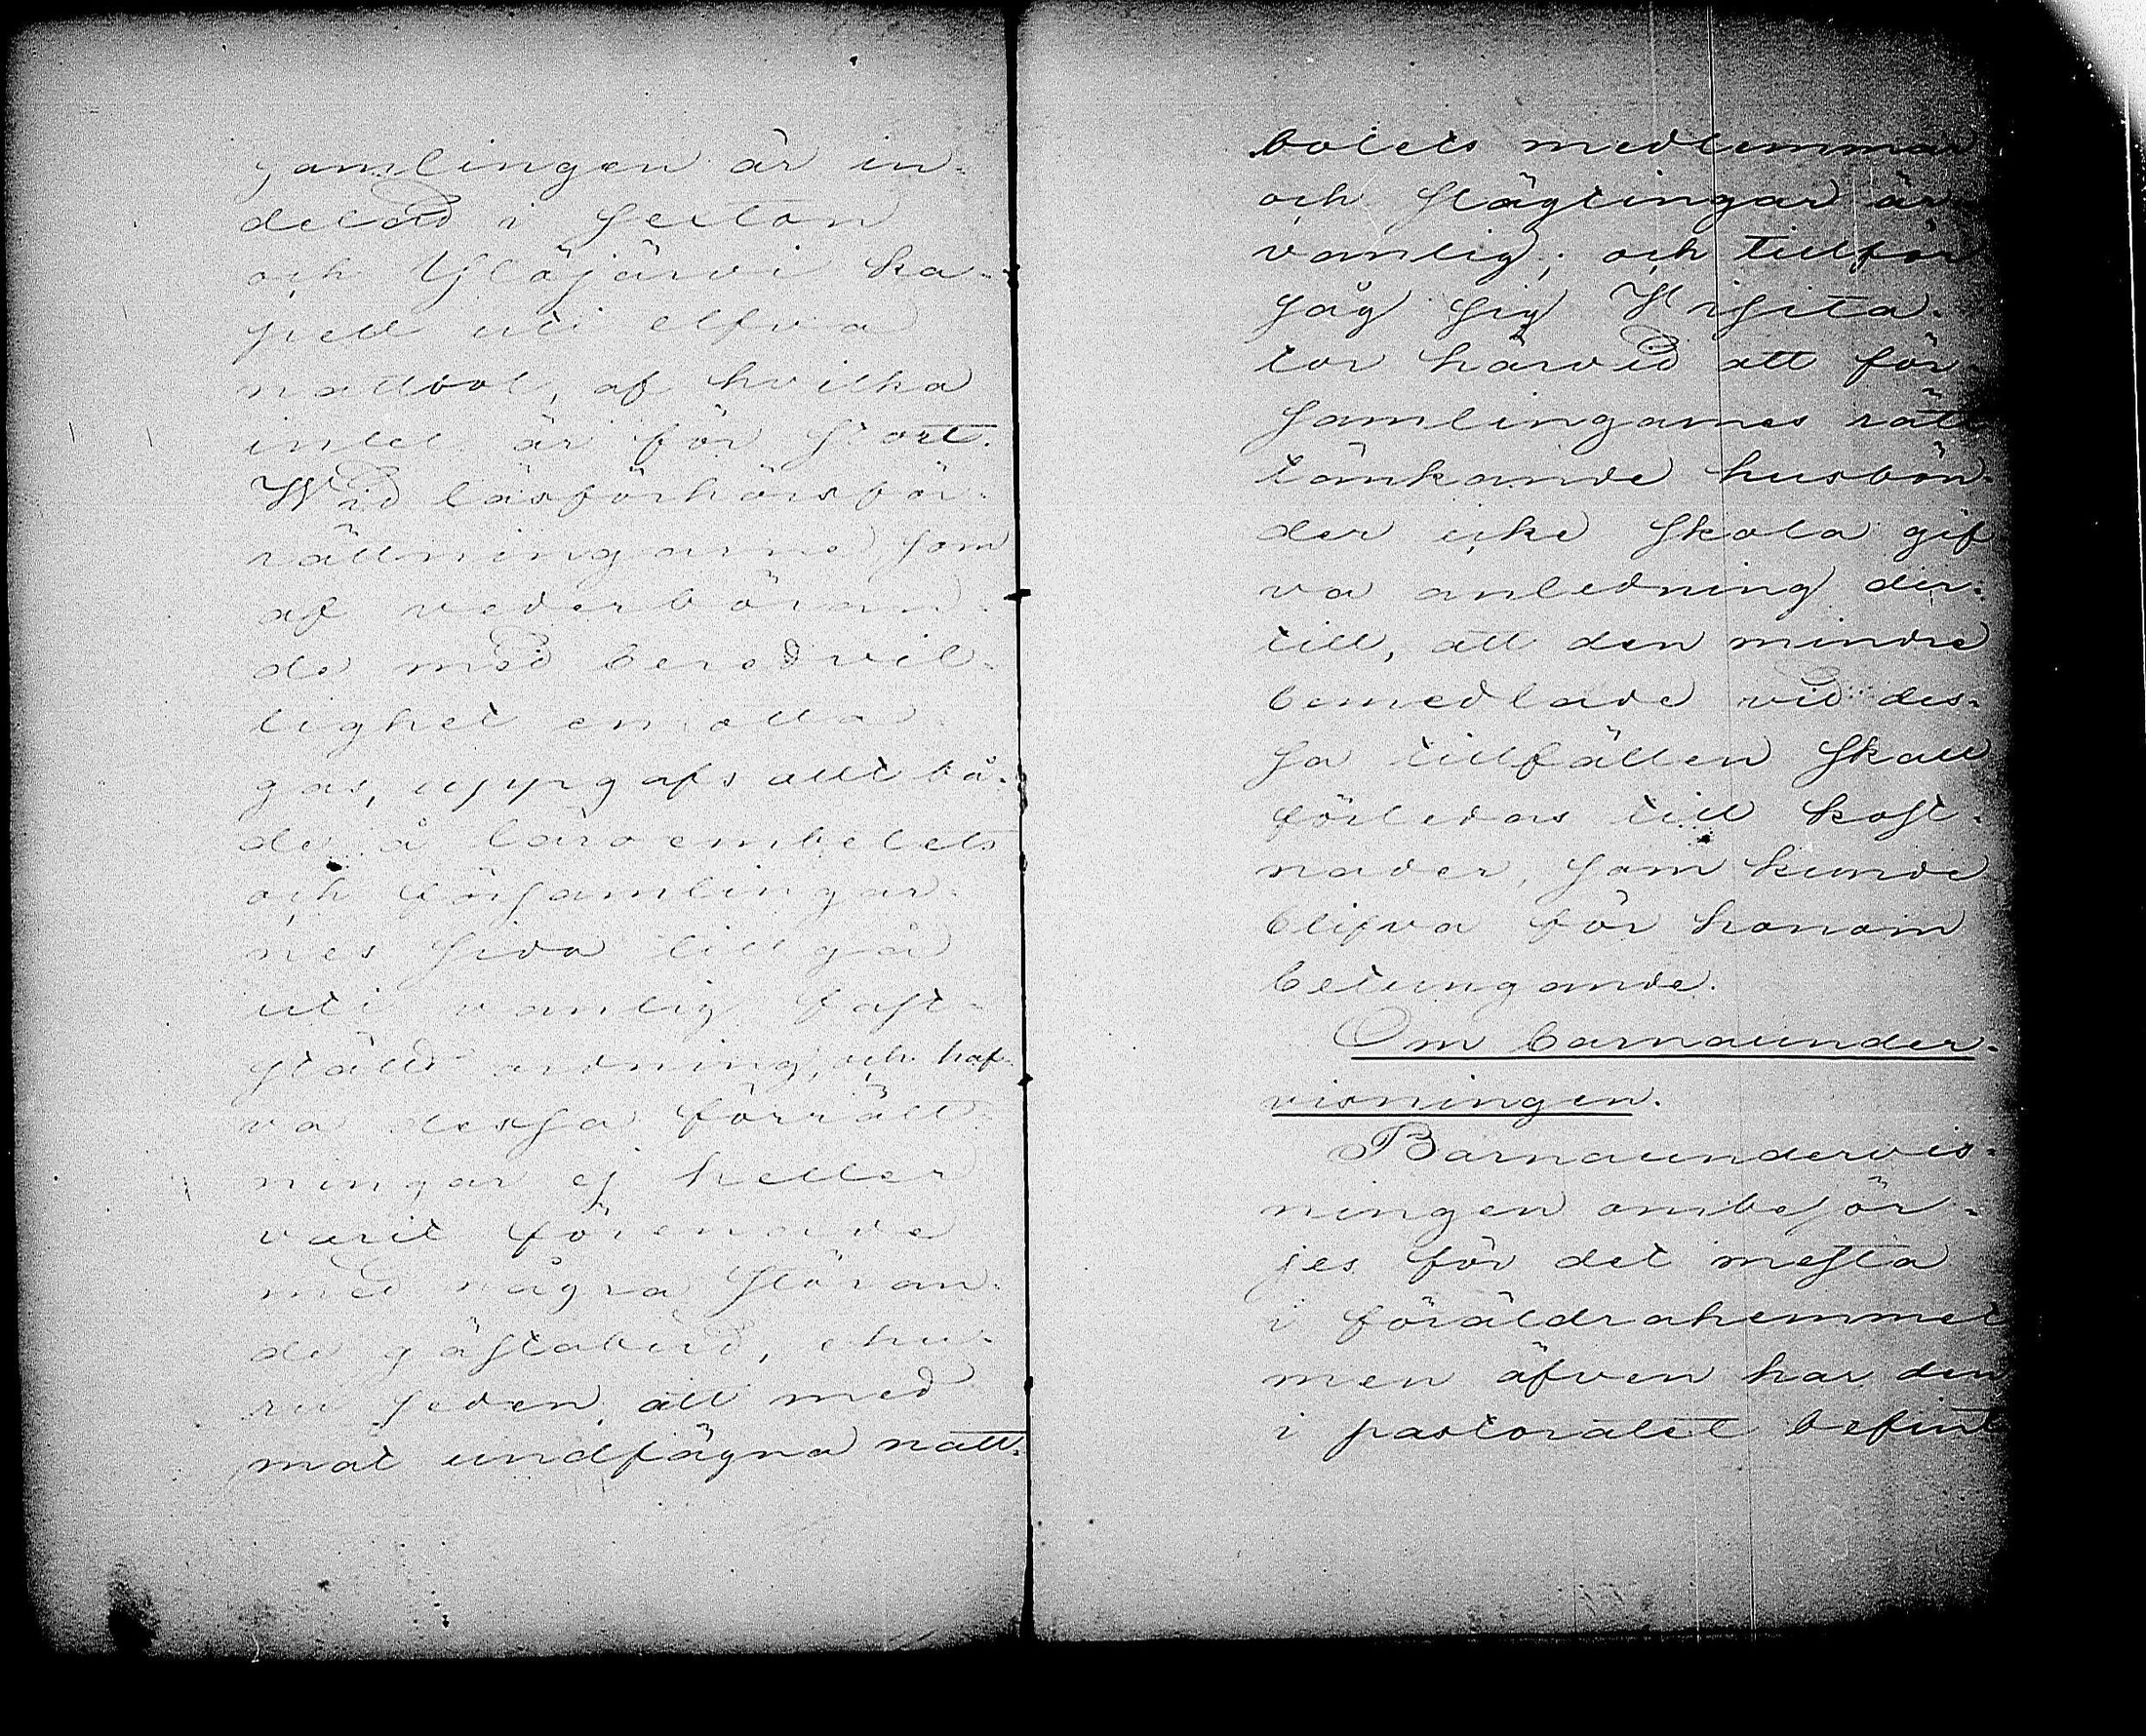 samlingen är in-
delad i sexton
och Ylöjärvi ka-
pell uti elfva
nattvol, af hvilka
intet är för stort.
Wid läsförhörsför-
rättningarne som
af vederböran-
de med beredvil-
lighet emotta-
gas, uppgafs allt bå-
de å läroembetets
och församlingar-
nes sida tillgå
uti vanlig fast-
ställd ordning, och haf-
va dessa förrätt-
ningar ej heller
varit förenade
med några störan-
de gästabud, ehu-
ru seden att med
mat undfägna natt-
bolets medlemmar
och slägtingar är
vanlig; och tillför-
såg sig Visita-
tor härvid att för-
samlingarnes rätt
tänkande husbön-
der icke skola gif
va anledning der-
till, att den mindre
bemedlade vid des-
sa tillfällen skall
förledas till kost-
nader, som kunde
blifva för honom
betungande.
Om barnaunder-
visningen.
Barnaundervis-
ningen ombesör-
jes för det mesta
i föräldrahemmet
men äfven har den
i pastoratet befint